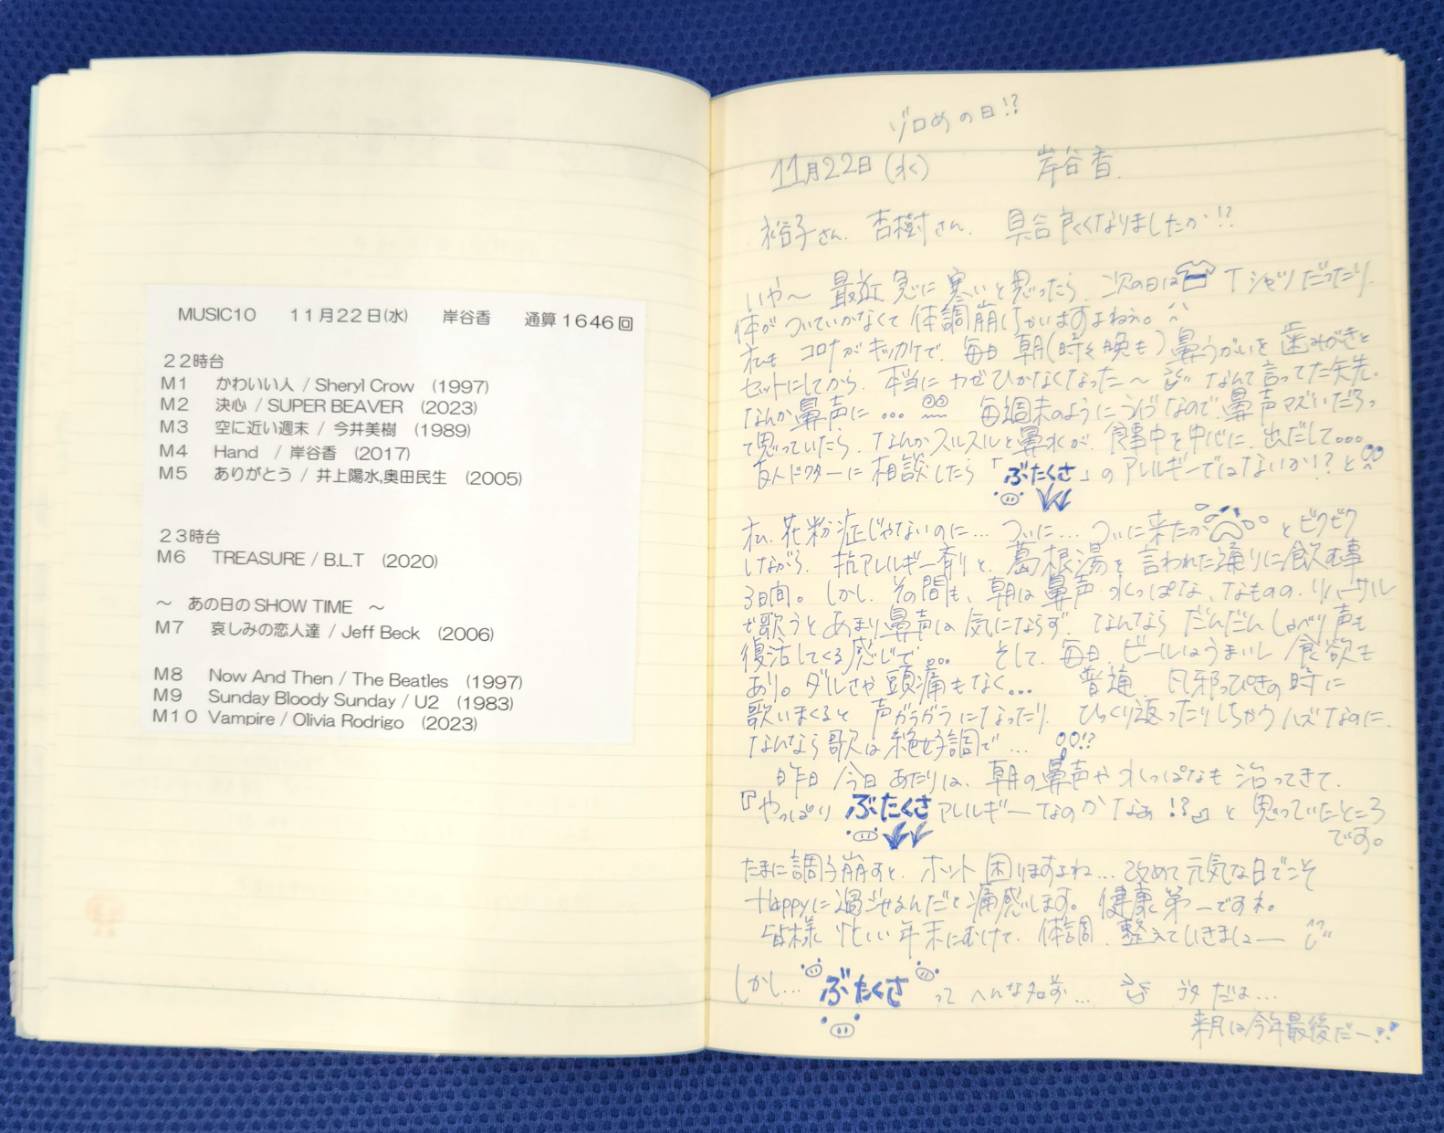 MUSIC10　11月22日(水)　岸谷香　通算1646回
22時台
M1　かわいい人 / Sheryl Crow　(1997)
M2　決心 / SUPER BEAVER　(2023)
M3　空に近い週末 / 今井美樹　(1989)
M4　Hand　/ 岸谷香　(2017)
M5　ありがとう / 井上陽水,奥田民生　(2005)
23時台
M6　TREASURE / B.L.T　(2020)
～　あの日のSHOW TIME　～
M7　哀しみの恋人達 / Jeff Beck　(2006)
M8　Now And Then / The Beatles　(1997)
M9　Sunday Bloody Sunday / U2　(1983)
M10　Vampire / Olivia Rodrigo　(2023)
ゾロめの日!?
11月22日(水)　岸谷香.
裕子さん、杏樹さん、具合良くなりましたか!?
いや〜 最近 急に寒いと思ったら、次の日は Tシャツだったり、
体がついていかなくて 体調崩しちゃいますよねぇ。
私も コロナがキッカケで、毎日 朝(時々晩も)鼻うがいを 歯みがきと
セットにしてから、本当にカゼひかなくなった〜 なんて言ってた矢先。
なんか鼻声に… 毎週末のようにライブなので、鼻声マズいだろっ
て思っていたら、なんかスルスルと鼻水が、食事中を中心に、出だして…
友人ドクターに相談したら「ぶたくさ」のアレルギーではないか!?と
私、花粉症じゃないのに… ついに… ついに来たか とビクビク
しながら、抗アレルギー剤と、葛根湯を言われた通りに飲む事
3日間。しかし、その間も、朝は鼻声、水っぱな、なものの、リハーサル
で歌うとあまり鼻声は気にならず、なんなら だんだんしゃべり声も
復活してくる感じで… そして、毎日、ビールはうまいし 食欲も
あり。ダルさや頭痛もなく… 普通、風邪っぴきの時に
歌いまくると 声ガラガラになったり、ひっくり返ったりしちゃうハズなのに、
なんなら歌は絶好調で… !?
昨日 今日 あたりは、朝の鼻声や水っぱなも 治ってきて、
『やっぱり ぶたくさアレルギーなのかなぁ!?』と思っていたところ
です。
たまに調子崩すと、ホント困りますよね… 改めて元気な日でこそ
Happyに過ごせるんだと痛感します。健康第一ですネ。
皆様 忙しい年末にむけて、体調、整えていきましょー
しかし… ぶたくさ って へんな名前… ブタだよ…
来月は今年最後だー!!